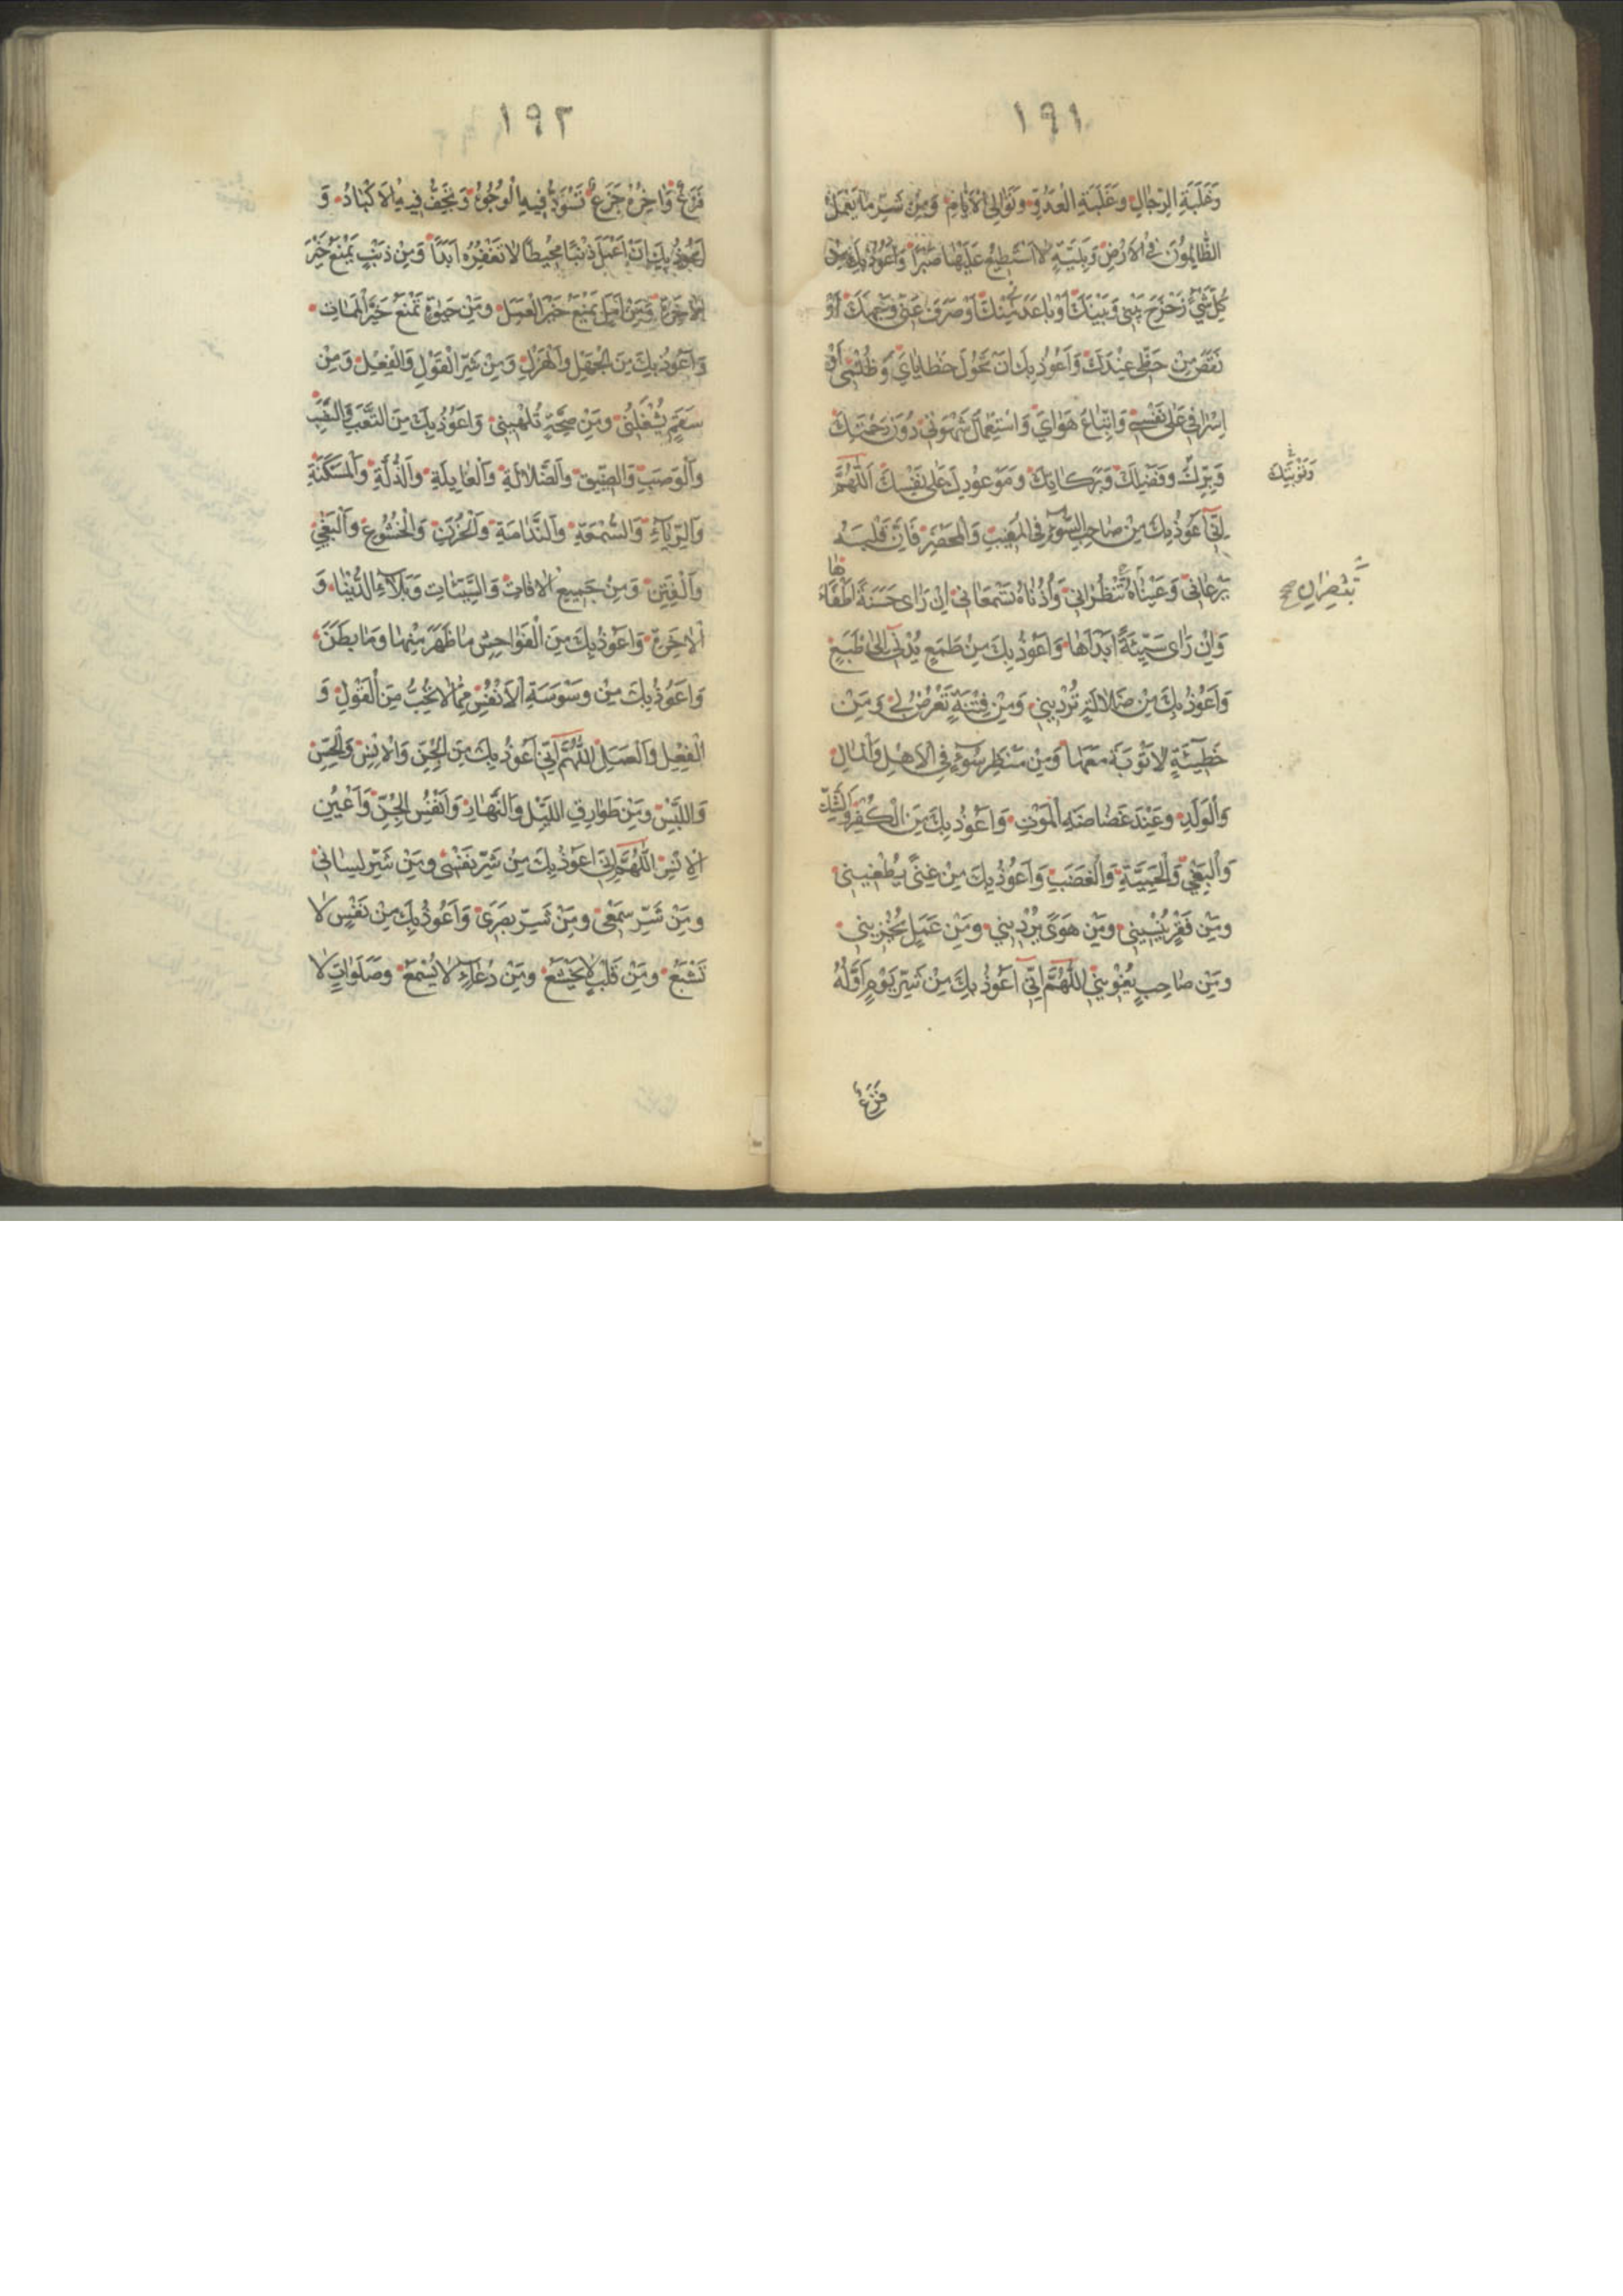 ١٩١
وَغَلَبَةِ الرِّجَالِ وَغَلَبَةِ الْعَدُوِّ وَتَوَالِي الْأَيَّامِ وَمِنْ شَرِّ مَا يَعْمَلُ
الظَّالِمُونَ فِي الْأَرْضِ وَبَلِيَّةٍ لَا أَسْتَطِيعُ عَلَيْهَا صَبْرًا وَأَعُوذُ بِكَ مِنْ
كُلِّ شَيْءٍ زَحْزَحَ بَيْنِي وَبَيْنَكَ أَوْ بَاعَدَ مِنْكَ أَوْ صَرَفَ عَنِّي وَجْهَكَ أَوْ
نَقَصَ مِنْ حَظِّي عِنْدَكَ وَأَعُوذُ بِكَ أَنْ تَحُولَ خَطَايَايَ وَظُلْمِي أَوْ
إِسْرَافِي عَلَى نَفْسِي وَاتِّبَاعَ هَوَايَ وَاسْتِعْمَالَ شَهْوَتِي دُونَ رَحْمَتِكَ
وَبِرِّكَ وَفَضْلِكَ وَبَرَكَاتِكَ وَمَوْعُودِكَ عَلَى نَفْسِكَ اللَّهُمَّ
إِنِّي أَعُوذُ بِكَ مِنْ صَاحِبِ السُّوءِ فِي الْمَغِيبِ وَالْمَحْضَرِ فَإِنَّ قَلْبَهُ
يَرْعَانِي وَعَيْنَاهُ تَنْظُرَانِي وَأُذُنَاهُ تَسْمَعَانِي إِنْ رَأَى حَسَنَةً أَطْفَأَهَا
وَإِنْ رَأَى سَيِّئَةً أَبْدَاهَا وَأَعُوذُ بِكَ مِنْ طَمَعٍ يُدْنِي إِلَى طَبَعٍ
وَأَعُوذُ بِكَ مِنْ ضَلَالَةٍ تُرْدِينِي وَمِنْ فِتْنَةٍ تَعْرِضُ لِي وَمِنْ
خَطِيئَةٍ لَا تَوْبَةَ مَعَهَا وَمِنْ مَنْظَرِ سُوءٍ فِي الْأَهْلِ وَالْمَالِ
وَالْوَلَدِ وَعِنْدَ غَضَاضَةِ الْمَوْتِ وَأَعُوذُ بِكَ مِنَ الْكُفْرِ وَالشَّكِّ
وَالْبَغْيِ وَالْحَمِيَّةِ وَالْغَضَبِ وَأَعُوذُ بِكَ مِنْ غِنًى يُطْغِينِي
وَمِنْ فَقْرٍ يُنْسِينِي وَمِنْ هَوًى يُرْدِينِي وَمِنْ عَمَلٍ يُخْزِينِي
وَمِنْ صَاحِبٍ يُغْوِينِي اللَّهُمَّ إِنِّي أَعُوذُ بِكَ مِنْ شَرِّ يَوْمٍ أَوَّلُهُ
فَزَعٌ
تُبْصِرَانِ
١٩٢
فَزَعٌ وَآخِرُهُ جَزَعٌ تَسْوَدُّ فِيهِ الْوُجُوهُ وَتَجِفُّ فِيهِ الْأَكْبَادُ وَ
أَعُوذُ بِكَ أَنْ أَعْمَلَ ذَنْبًا مُحِيطًا لَا تَغْفِرُهُ أَبَدًا وَمِنْ ذَنْبٍ يَمْنَعُ خَيْرَ
الْآخِرَةِ وَمِنْ أَمَلٍ يَمْنَعُ خَيْرَ الْعَمَلِ وَمِنْ حَيٰوةٍ تَمْنَعُ خَيْرَ الْمَمَاتِ
وَأَعُوذُ بِكَ مِنَ الْجَهْلِ وَالْهَزْلِ وَمِنْ شَرِّ الْقَوْلِ وَالْفِعْلِ وَمِنْ
سَقَمٍ يُشْغِلُنِي وَمِنْ صِحَّةٍ تُلْهِينِي وَأَعُوذُ بِكَ مِنَ التَّعَبِ وَالنَّصَبِ
وَالْوَصَبِ وَالضِّيقِ وَالضَّلَالَةِ وَالْغَائِلَةِ وَالذِّلَّةِ وَالْمَسْكَنَةِ
وَالرِّيَاءِ وَالسُّمْعَةِ وَالنَّدَامَةِ وَالْحُزْنِ وَالْخُشُوعِ وَالْبَغْيِ
وَالْفِتَنِ وَمِنْ جَمِيعِ الْآفَاتِ وَالسَّيِّئَاتِ وَبَلَاءِ الدُّنْيَا وَ
الْآخِرَةِ وَأَعُوذُ بِكَ مِنَ الْفَوَاحِشِ مَا ظَهَرَ مِنْهَا وَمَا بَطَنَ
وَأَعُوذُ بِكَ مِنْ وَسْوَسَةِ الْأَنْفُسِ مِمَّا لَا تُحِبُّ مِنَ الْقَوْلِ وَ
الْفِعْلِ وَالْعَمَلِ اللَّهُمَّ إِنِّي أَعُوذُ بِكَ مِنَ الْجِنِّ وَالْإِنْسِ وَالْحِسِّ
وَاللَّبْسِ وَمِنْ طَوَارِقِ اللَّيْلِ وَالنَّهَارِ وَأَنْفُسِ الْجِنِّ وَأَعْيُنِ
الْإِنْسِ اللَّهُمَّ إِنِّي أَعُوذُ بِكَ مِنْ شَرِّ نَفْسِي وَمِنْ شَرِّ لِسَانِي
وَمِنْ شَرِّ سَمْعِي وَمِنْ شَرِّ بَصَرِي وَأَعُوذُ بِكَ مِنْ نَفْسٍ لَا
تَشْبَعُ وَمِنْ قَلْبٍ لَا يَخْشَعُ وَمِنْ دُعَاءٍ لَا يُسْمَعُ وَصَلَوَاتٍ لَا